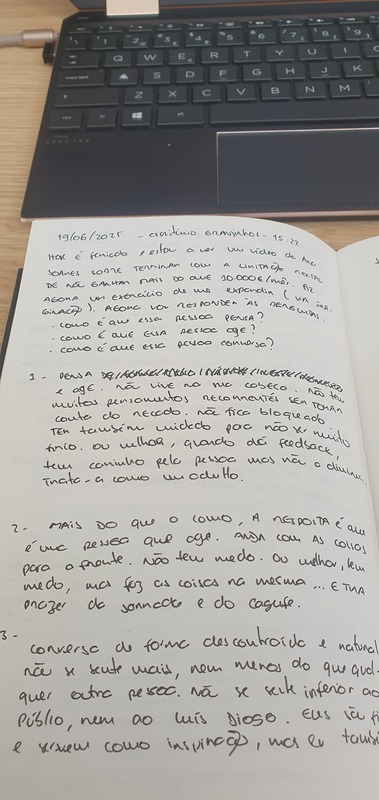 Q W E R T Y U I
S D F G H J K
Z X C V B N M
SPECTRE
19/06/2025 - escritório GRANJINHOS - 15:22
HOJE é feriado e estou a ver um vídeo de
SOARES SOBRE TERMINAR COM A LIMITAÇÃO MENTAL
DE NÃO GANHAR MAIS DO QUE 10.000€/MÊS. FIZ
AGORA um exercício de me expandir (via
GINAÇÃO). AGORA VOU RESPONDER ÀS PERGUNTAS:
. como é que essa pessoa pensa?
. como é que essa pessoa age?
. como é que essa pessoa conversa?
1 - PENSA
e age. não vive na sua cabeça. Não tem
muitos pensamentos recorrentes sem tomar
conta do recado. não fica bloqueado.
Tem também cuidado para não ser muito
frio. ou melhor, quando dá feedback,
tem carinho pela pessoa mas não a diminui.
Trata-a como um adulto.
2 - MAIS DO que o como, A RESPOSTA é que
é uma pessoa que age. ANDA COM AS COISAS
para a frente. Não tem medo. Ou melhor, tem
medo, mas faz as coisas na mesma ... E TIRA
prazer da jornada e do cagufe.
3 - conversa de forma descontraída e natural
não se sente mais, nem menos do que qual-
quer outra pessoa. Não se sente inferior ao
público, nem ao Luís Diogo. Eles
e servem como inspiração, mas eu também